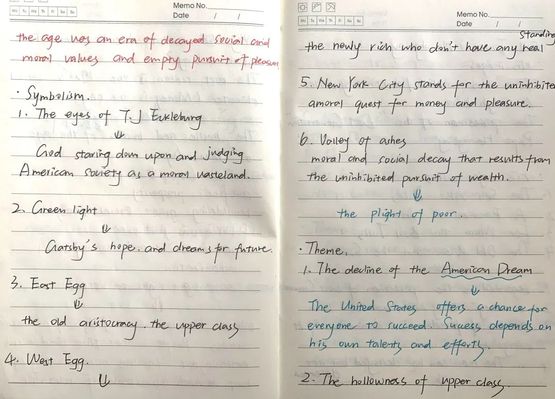 Memo No.
Mo Tu We Th Fr Sa Su
Date / /
the age was an era of decayed social and
moral values and empty pursuit of pleasure
· Symbolism.
1. The eyes of T.J Eckleburg
⇓
God staring down upon and judging
American society as a moral wasteland.
2. Green light
⇓
Gatsby's hope. and dreams for future.
3. East Egg
⇓
the old aristocracy. the upper class
4. West Egg.
⇓
Memo No.
Mo Tu We Th Fr Sa Su
Date / /
standing
the newly rich who don't have any real
5. New York City stands for the uninhibited
amoral quest for money and pleasure.
6. Valley of ashes
moral and social decay that results from
the uninhibited pursuit of wealth.
⇓
the plight of poor.
· Theme.
1. The decline of the American Dream
⇓
The United States offers a chance for
everyone to succeed. Sucess depends on
his own talents and efforts.
2. The hollowness of upper class.